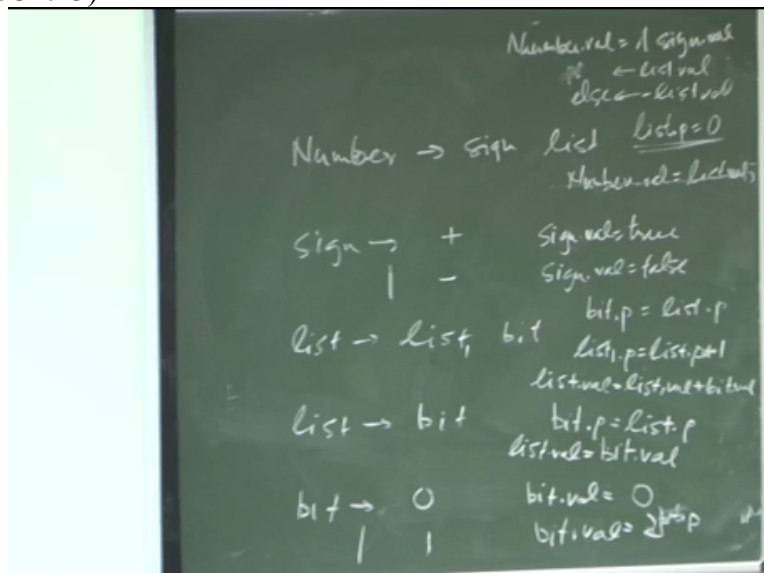 Number.val = if sign.val
← list.val
else ← -list.val
Number → sign list list.p=0
Number.val = list.val;
sign → + sign.val=true
| - sign.val=false
bit.p = list.p
list → list₁ bit list₁.p=list.p+1
list.val=list₁.val+bit.val
list → bit bit.p=list.p
list.val=bit.val
bit → 0 bit.val= 0
| 1 bit.val= 2^bit.p